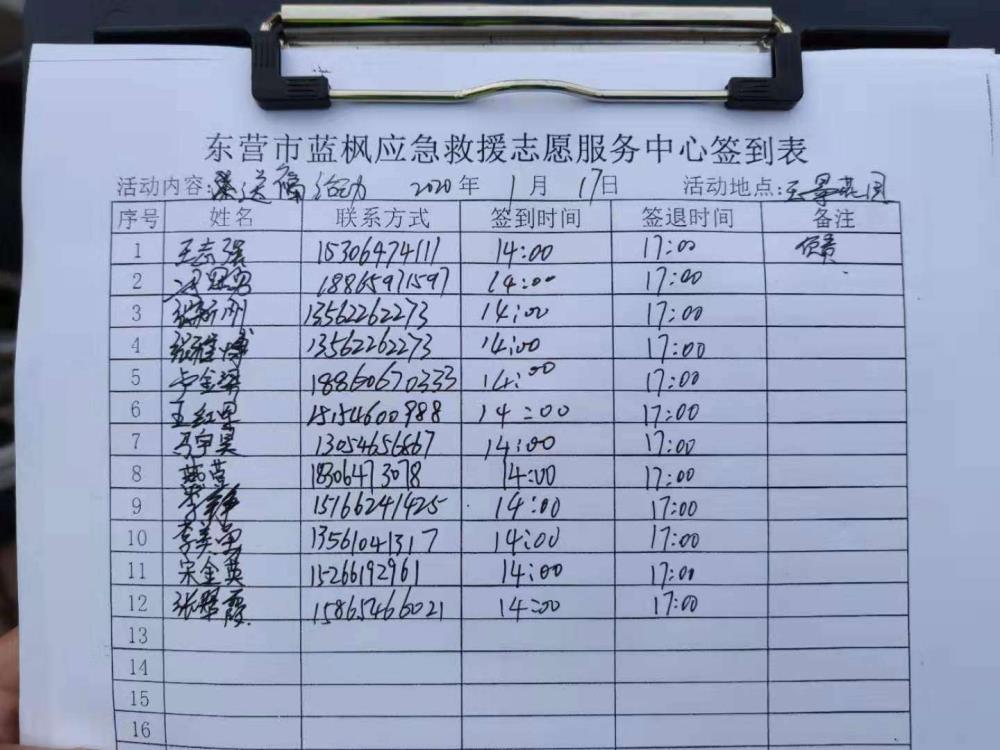 东营市蓝枫应急救援志愿服务中心签到表
活动内容: 送福 活动 2020年 1月 17日 活动地点: 园
序号 姓名 联系方式 签到时间 签退时间 备注
1 王志强 15306474111 14:00 17:00
2 18865971597 14:00 17:00
3 张新刚 13562262273 14:00 17:00
4 张雅博 13562262273 14:00 17:00
5 18860670333 14:00 17:00
6 王红果 15154600988 14:00 17:00
7 马宇昊 13054656667 14:00 17:00
8 18306473078 14:00 17:00
9 李静 15166241425 14:00 17:00
10 李美 13561041317 14:00 17:00
11 宋金英 15266192961 14:00 17:00
12 张翠霞 15865466021 14:00 17:00
13
14
15
16